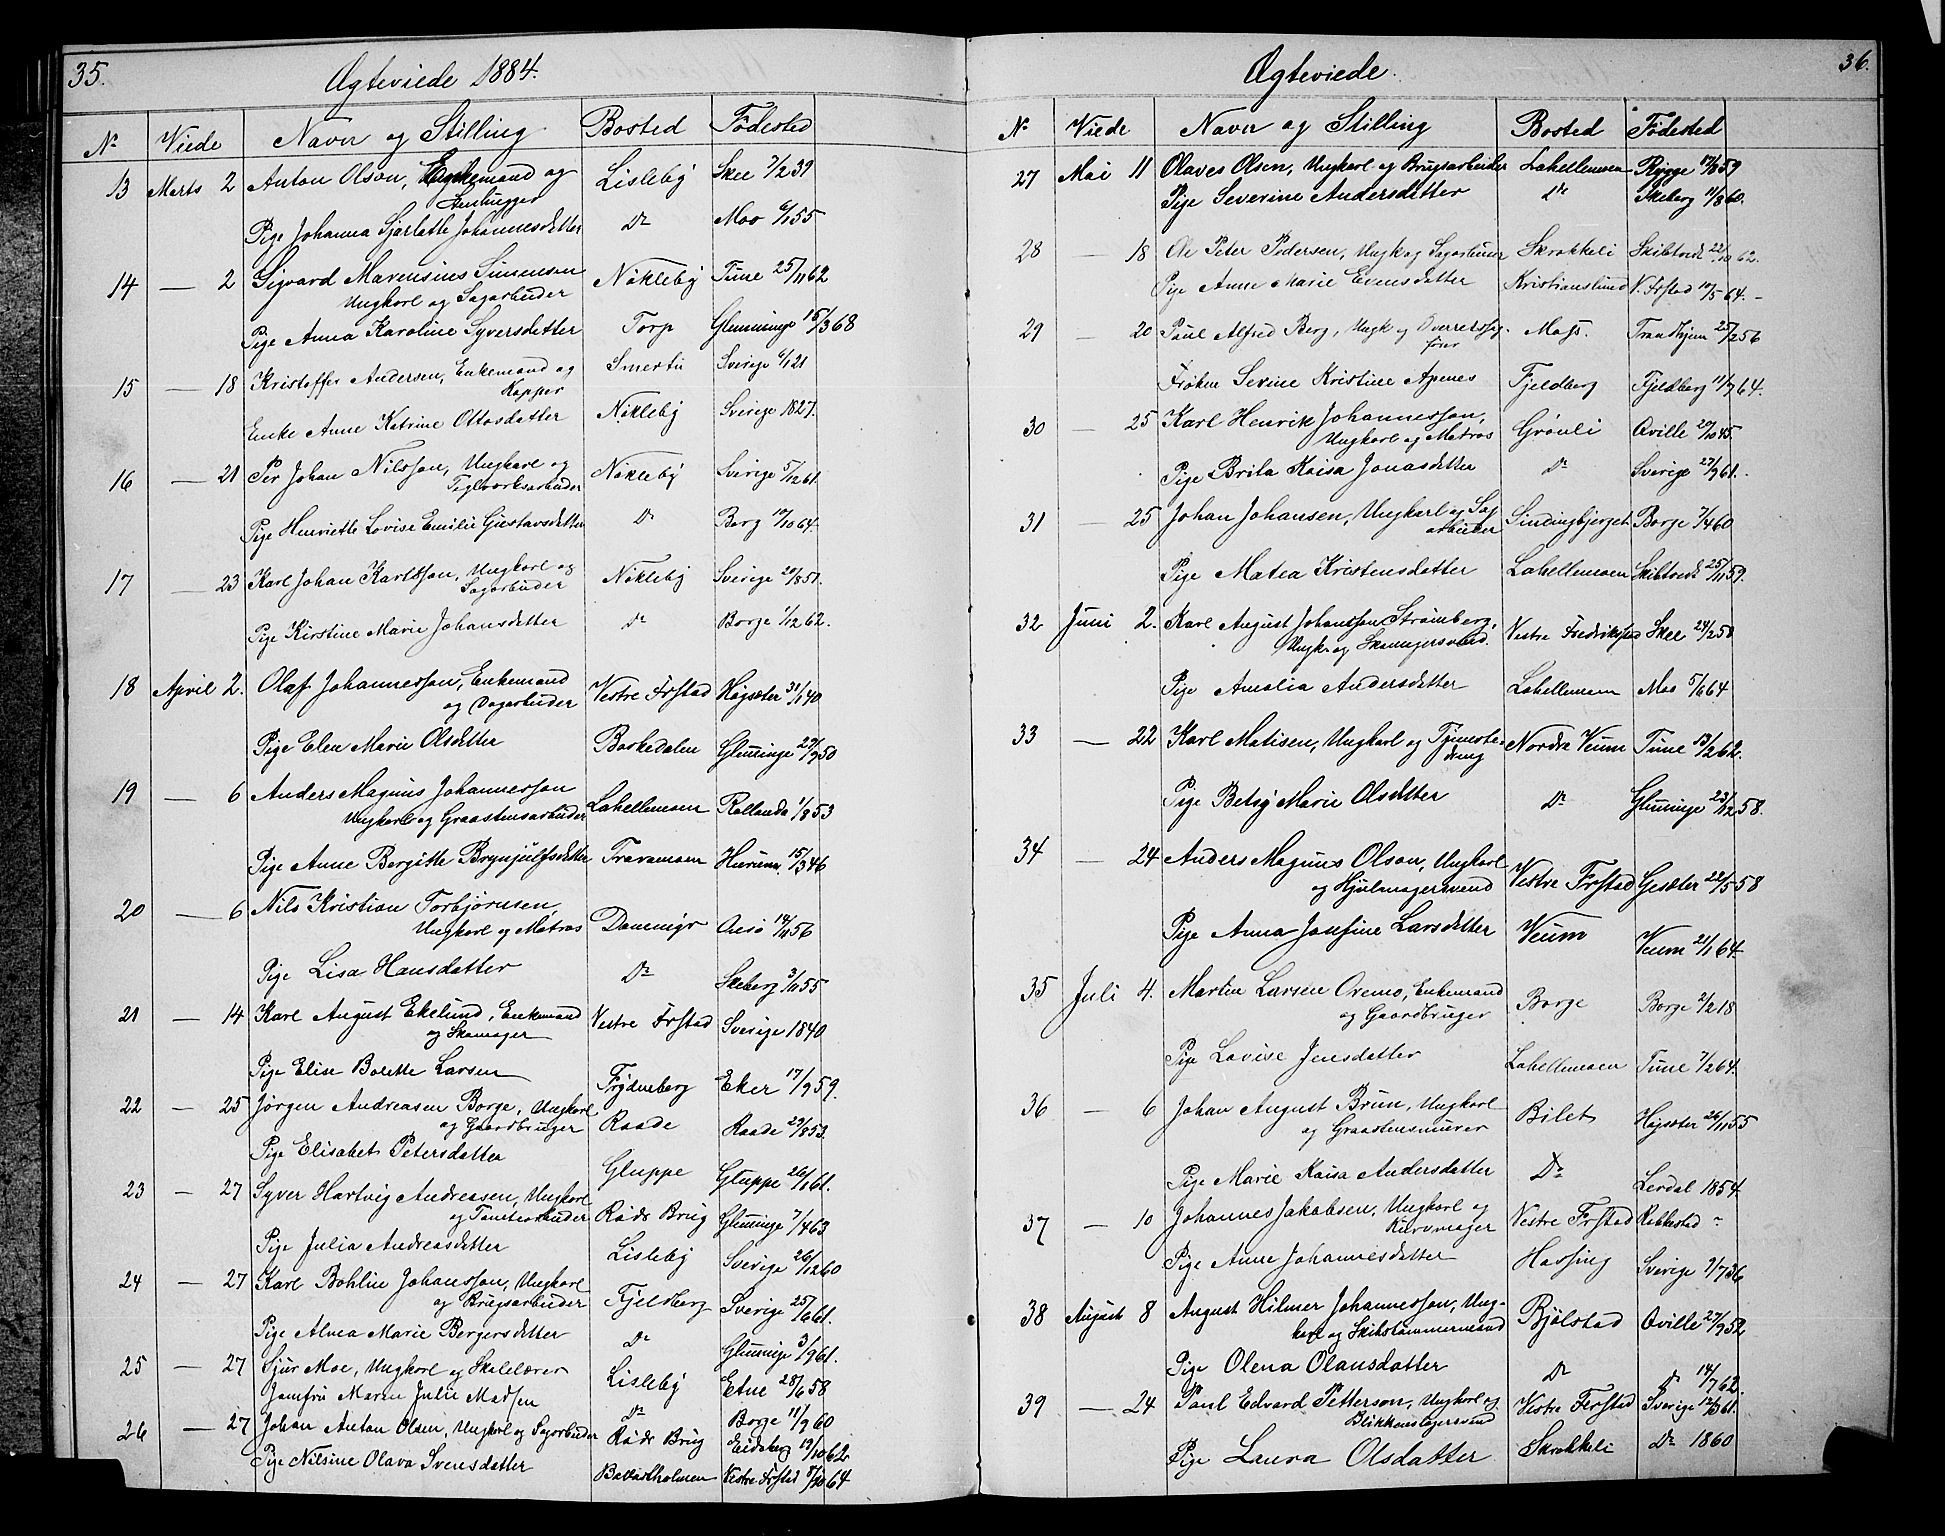 35.
Ægteviede 1884.
No Viede Navn og Stilling Bosted Fødested
13 Marts 2 Anton Olson, Enkemand og Lisleby Skee 7/2 39
Stenhugger
Pige Johanna Sjarlatte Johannesdatter Do Moo 6/1 55
14 — 2 Sigvard Marensius Simensen Nökleby Tune 25/11 62
Ungkarl og Sagarbeider
Pige Anna Karoline Syversdatter Torp Glemminge 15/3 68
15 — 18 Kristoffer Andersen, Enkemand og Smertu Sverige 6/1 21
Kopper
Enke Anne Katrine Ottosdatter Nökleby Sverige 1827.
16 — 21 Per Johan Nilsson, Ungkarl og Nökleby Sverige 5/12 61.
Teglværksarbeider
Pige Henriette Lovise Emilie Gustavsdatter Do Borg 10/10 64.
17 — 23 Karl Johan Karlsson, Ungkarl og Nökleby Sverige 20/8 57.
Sagarbeider
Pige Kirstine Marie Johansdatter Do Borge 1/12 62.
18 April 2. Olaf Johannesson, Enkemand Vestre Frstad Högsæter 31/1 40
og Dagarbeider
Pige Elen Marie Olsdatter Baskedalen Glemminge 29/9 50
19 — 6 Anders Magnus Johannesson
Ungkarl og Graastensarbeider Lahellemoen Rollanda 1/8 53
Pige Anne Bergitte Brynjulfsdatter Traramoen Hurum 15/3 46
20 — 6 Nils Kristian Torbjörnsen, Danemigr Onsö 14/11 56
Ungkarl og Matros
Pige Lisa Hansdatter Do Skeberg 3/11 55
21 — 14 Karl August Ekelund, Enkemand Vestre Frstad Sverige 1840
og Skomager
Pige Elise Bolette Larsen Frydenberg Eker 17/9 59.
22 — 25 Jørgen Andreasen Borge, Ungkarl Raade Raade 29/8 53.
og Gaardbruger
Pige Elisabet Petersdatter Gluppe Gluppe 26/1 61.
23 — 27 Syver Hartvig Andreasen, Ungkarl Röds Brug Glemminge 7/4 63
og Tomtearbeider
Pige Julia Andreasdatter Lisleby Sverige 26/12 60
24 — 27 Karl Bohlin Johansson, Ungkarl Fjeldberg Sverige 25/6 61.
og Brugsarbeider
Pige Alma Marie Bergersdatter Do Glemminge 3/9 61.
25 — 27 Sjur Moe, Ungkarl og Skolelærer Lisleby Etne 28/6 58
Jomfru Maren Julie Madsen Do Borge 11/9 60
26 — 27 Johan Anton Olsen, Ungkarl og Sagarbeider Röds Brug Eidsberg 19/10 62
Pige Nilsine Olava Svensdatter Ballastholmen Vestre Frstad 8/10 64
36.
Ægteviede.
No Viede Navn og Stilling Bosted Fødested
27 Mai 11 Olaves Olsen, Ungkarl og Brugsarbeider Lahellemoen Rygge 17/8 59
Pige Severine Andersdatter Do Skeberg 11/8 60.
28 — 18 Ole Peter Pedersen, Ungk og Sagarbeider Skrokkeli Skibtvedt 22/10 62.
Pige Anne Marie Evensdatter Kristianslund V. Frstad 10/5 64.
29 — 20 Paul Alfred Berg, Ungk og Overretssag- Moss. Trondhjem 25/2 56
fører
Frøken Sevine Kristine Apenes Fjeldberg Fjeldberg 11/9 64.
30 — 25 Karl Henrik Johannesson, Grönli Qville 20/10 45.
Ungkarl og Matros
Pige Brita Kaisa Jonasdatter Do Sverige 27/9 61.
31 — 25 Johan Johansen, Ungkarl og Sag Sindingbjerget Borge 7/4 60
arbeider
Pige Matea Kristensdatter Lahellemoen Skibtvedt 25/11 59.
32 Juni 2. Karl August Johansson Strömberg, Vestre Fredrikstad Skee 24/2 58
Ungk. og Skomagersvend.
Pige Amalia Andersdatter Lahellemoen Moo 5/6 64
33 — 22 Karl Matisen, Ungkarl og Tjeneste- Nordre Veum Tune 13/2 62.
dreng
Pige Betsy Marie Olsdatter Do Glemminge 23/12 58.
34 — 24 Anders Magnus Olson, Ungkarl Vestre Frstad Gesæter 22/5 58
og Hjulmagersvend
Pige Anna Josefine Larsdatter Veum Veum 21/1 64
35 Juli 4. Martin Larsen Oremo, Enkemand Borge Borge 2/2 18
og Gaardbruger
Pige Lovise Jensdatter Lahellemoen Tune 7/2 64.
36 — 6 Johan August Brun, Ungkarl Bilet Högsæter 26/11 55
og Graastensmurer
Pige Marie Kaisa Andersdatter Do Lerdal 1854.
37 — 10 Johannes Jakobsen, Ungkarl og Vestre Frstad Rakkestad
Kurvmager
Pige Anne Johannesdatter Hassing Sverige 9/7 36
38 August 8 August Hilmer Johannesson, Ung- Bjölstad Qville 27/9 52
karl og Skibstömmermand
Pige Olena Olausdatter Do Do 14/7 62.
39 — 24 Paul Edvard Petterson, Ungkarl og Vestre Frstad Sverige 12/3 61.
Blikkenslagersvend
Pige Laura Olsdatter Skrokkeli Do 1860